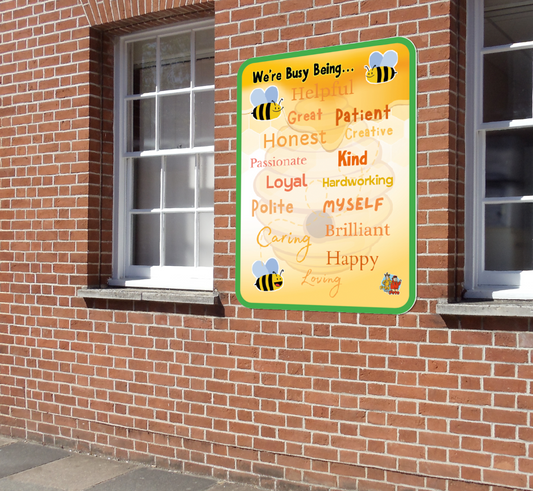 We're Busy Being...
Helpful
Great Patient
Honest Creative
Passionate Kind
Loyal Hardworking
Polite MYSELF
Caring Brilliant
Happy
Loving